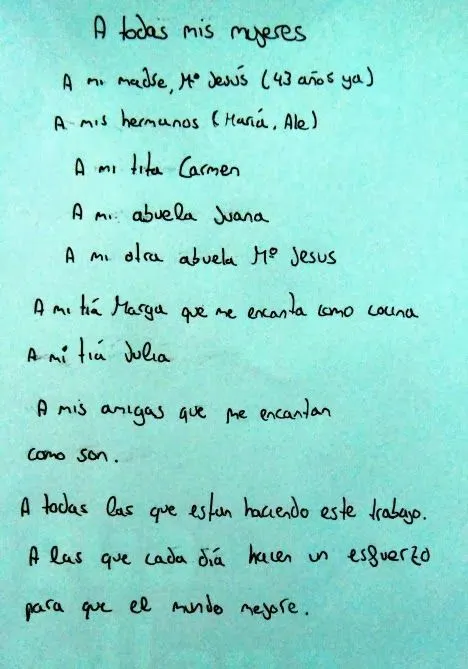 A todas mis mujeres
A mi madre, Mª Jesús (43 años ya)
A mis hermanos (María, Ale)
A mi tita Carmen
A mi abuela Juana
A mi otra abuela Mª Jesus
A mi tiá Marga que me encanta como cocina
A mi tiá Julia
A mis amigas que me encantan
como son.
A todas las que estan haciendo este trabajo.
A las que cada día hacen un esfuerzo
para que el mundo mejore.